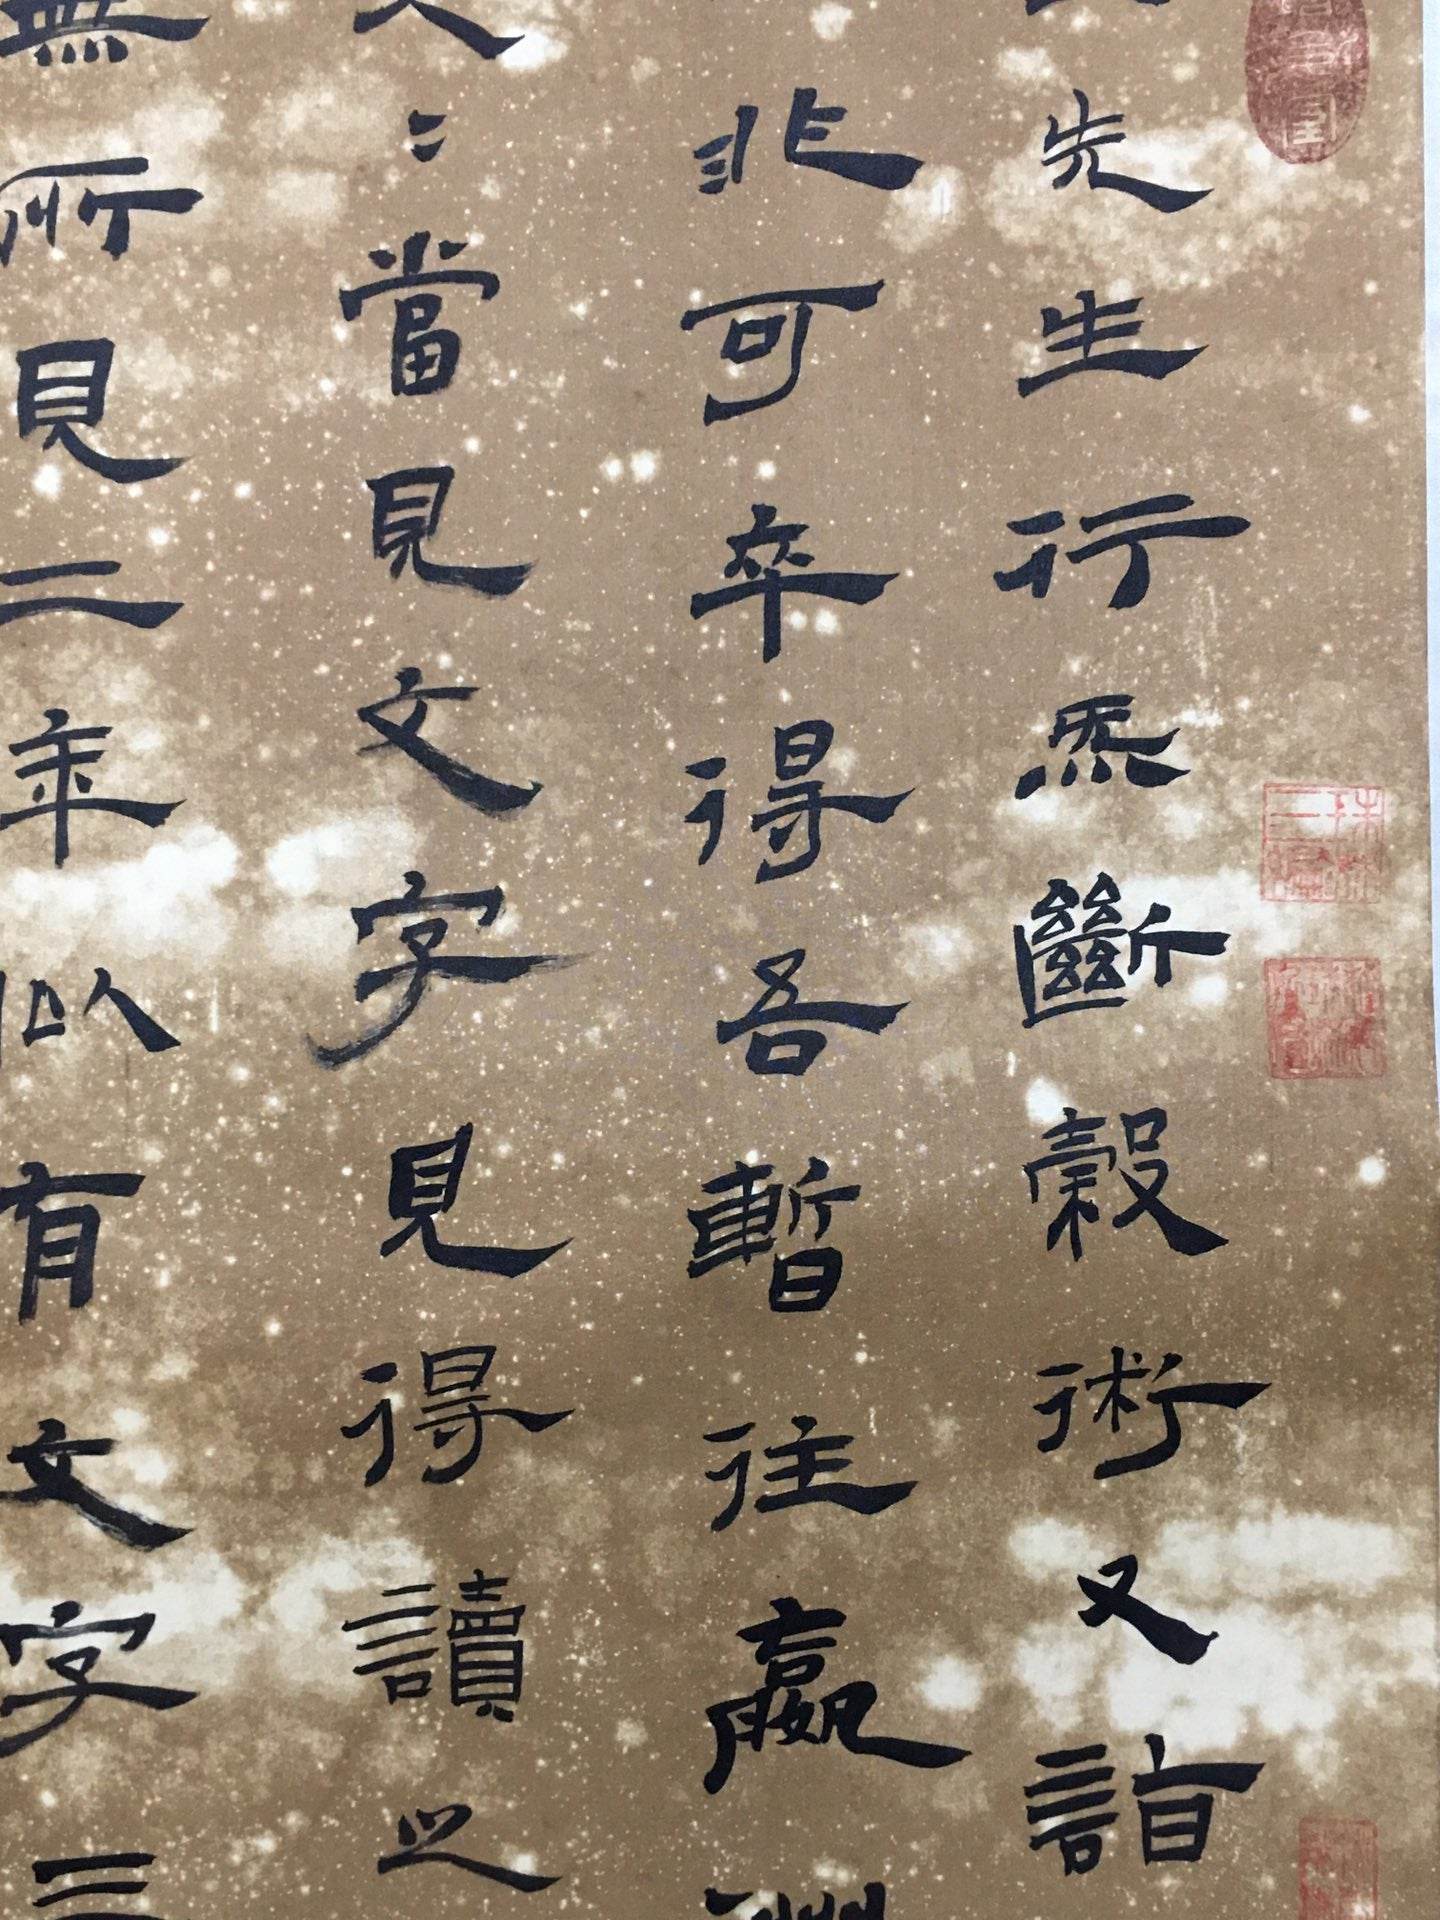 先生行炁斷穀術又詣
非可卒得吾暫往嬴洲
〻當見文字見得讀之
無所見二年似有文字三